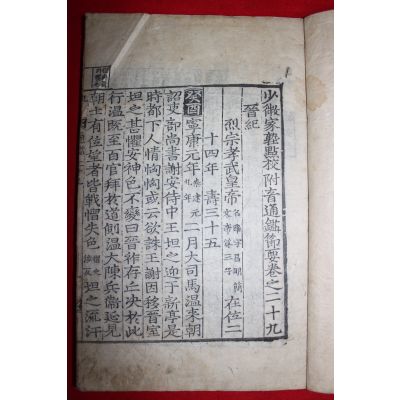 少微家塾點校附音通鑑節要卷之二十九
晉紀
烈宗孝武皇帝 名曜字昌明簡文帝第三子 在位二
十四年 壽三十五
癸酉 寧康元年 秦建元九年 二月大司馬溫來朝
詔吏部尚書謝安侍中王坦之迎于新亭是
時都下人情恟恟或云欲誅王謝因移晉室
坦之甚懼安神色不變曰晉祚存亡決於此
行溫旣至百官拜於道側溫大陳兵衛延見
朝士有位望者皆戰慴失色 坦之流汗